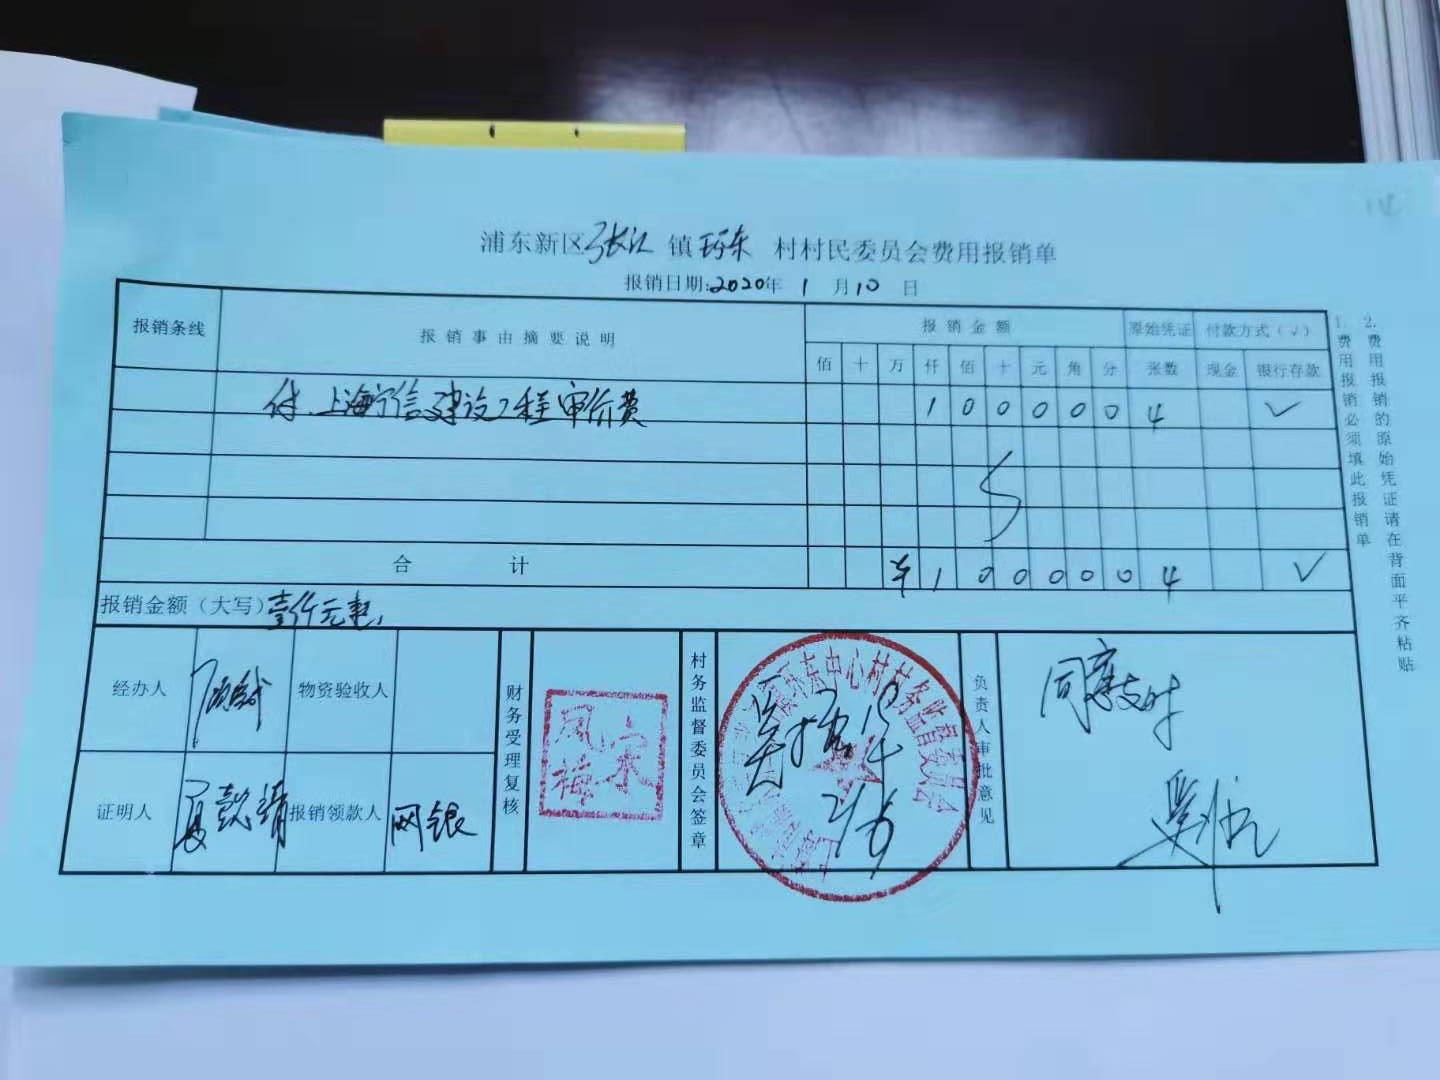 浦东新区张江镇环东村村民委员会费用报销单
报销日期:2020年1月10日
报销条线 报销事由摘要说明 报销金额 原始凭证 付款方式(√)
佰 十 万 仟 佰 十 元 角 分 张数 现金 银行存款
付.上海宁信建设工程审价费 1 0 0 0 0 0 4 √
合计 ¥ 1 0 0 0 0 0 4 √
报销金额(大写)壹仟元整
经办人 物资验收人
证明人 夏懿靖 报销领款人 网银
财务受理复核
宋凤梅
村务监督委员会签章
环东中心村村务监督委员会
负责人审批意见
同意支付
1.费用报销必须填此报销单
2.费用报销的原始凭证请在背面平齐粘贴